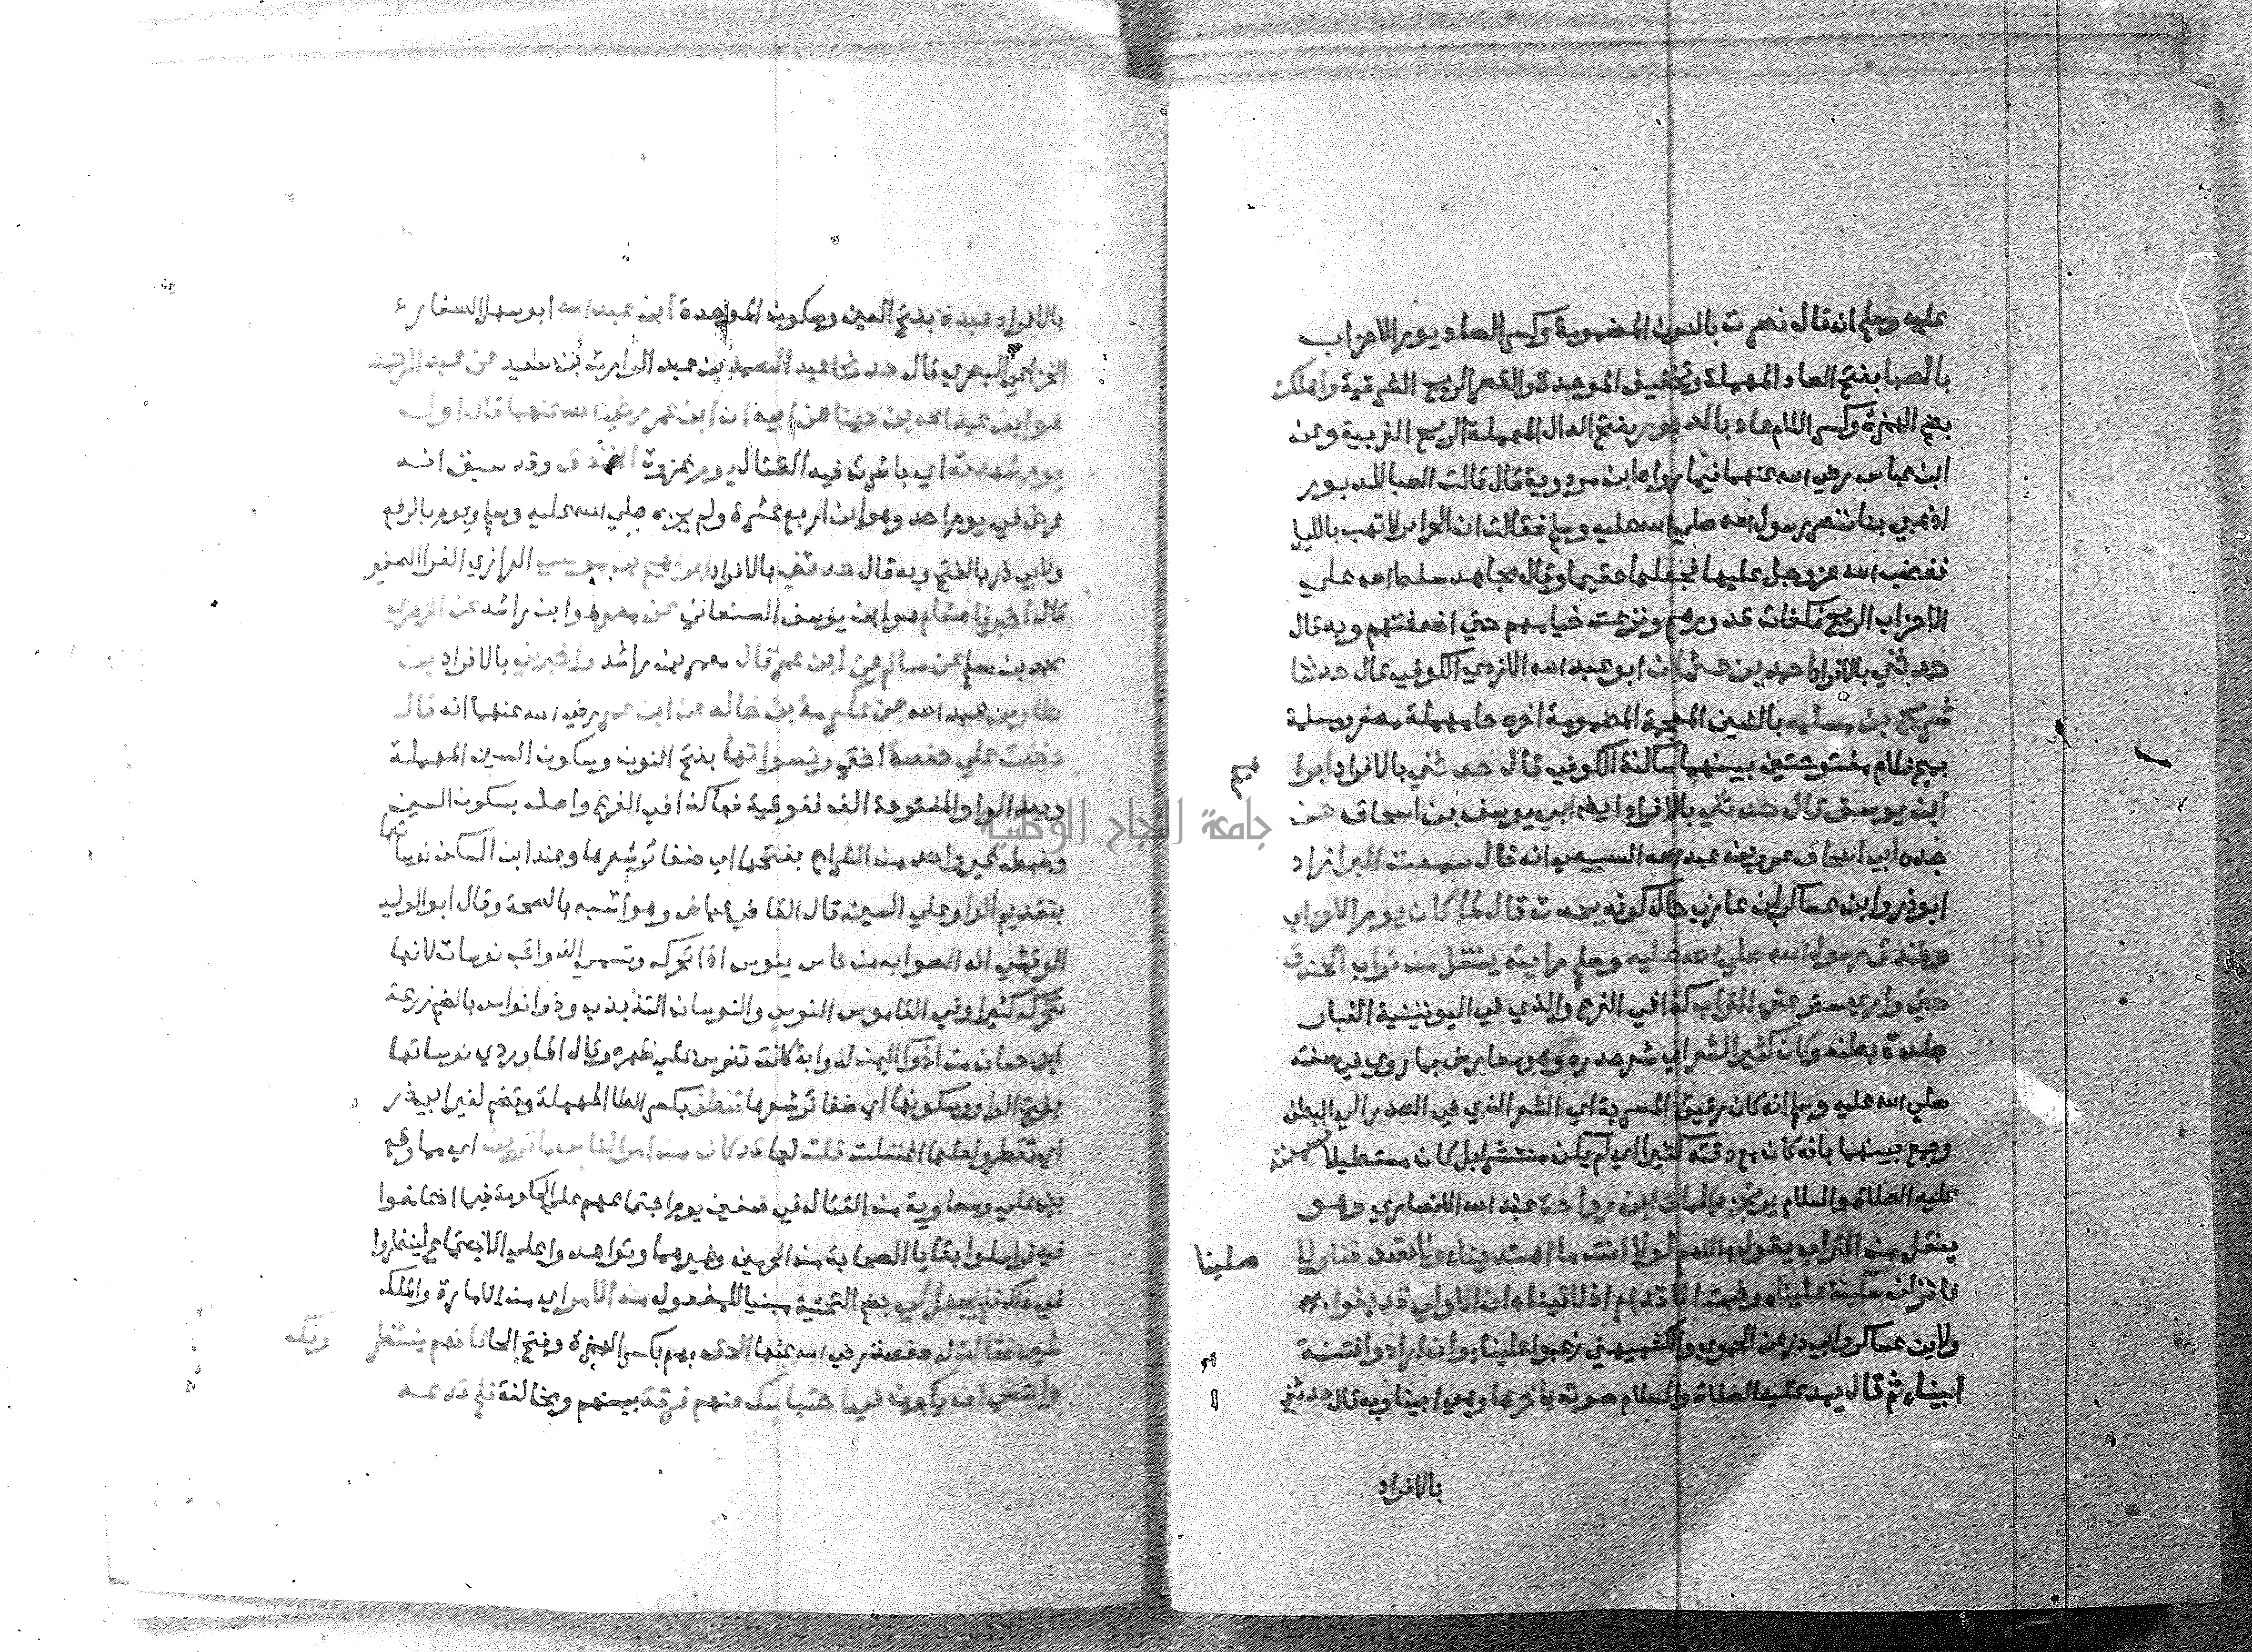 عليه وسلم انه قال نصرت بالنون المضمومة وكسر الصاد يوم الاحزاب
بالصبا بفتح الصاد المهملة وتخفيف الموحدة والقصر الريح الشرقية واهلكت
بضم الهمزة وكسر اللام عاد بالدبور بفتح الدال المهملة الريح الغربية وعن
ابن عباس رضي الله عنهما فيما رواه ابن مردوية قال قالت الصبا للدبور
اذهبي بنا ننصر رسول الله صلي الله عليه وسلم فقالت ان الحراير لا تهب بالليل
فغضب الله عز وجل عليها فجعلها عقيما وقال مجاهد سلط الله علي
الاحزاب الريح فكفات قدورهم ونزعت خيامهم حتي اضعفتهم وبه قال
حدثني بالافراد احمد بن عثمان ابو عبد الله الازدي الكوفي قال حدثنا
شريح بن مسلمه بالشين المعجمة المضمومة اخره حا مهملة مصغر ومسلمة
بميم ولام مفتوحتين بينهما ساكنة الكوفي قال حدثني بالافراد ابرا
هيم
ابن يوسف قال حدثني بالافراد ايضا ابي يوسف بن اسحاق عن
جده ابي اسحاق عمرو بن عبد الله السبيعي انه قال سمعت البرا زاد
ابو ذر وابن عساكر ابن عازب حال كونه يحدث قال لما كان يوم الاحزاب
وخندق رسول الله صلي الله عليه وسلم رايته ينقل من تراب الخندق
حتي واري عني التراب كذا في الفرع والذي في اليونينية الغبار
جلدة بطنه وكان كثير الشعر اي شعر صدره وهو معارض بما روي في صفته
صلي الله عليه وسلم انه كان دقيق المسربة اي الشعر الذي في الصدر الي البطن
وجمع بينهما بانه كان مع دقته كثيرا اي لم يكن منتشرا بل كان مستطيلا فسمعته
عليه الصلاة والسلام يرتجز بكلمات ابن رواحة عبد الله الانصاري وهو
ينقل من التراب يقول اللهم لولا انت ما اهتدينا ولا تصدقنا ولا
صلينا
فانزلن سكينة علينا وثبت الاقدام ان لاقينا ان الاولي قد بغوا
ولابن عساكر وابي ذر عن الحموي والكشميهني رغبوا علينا وان ارادوا فتنة
ابينا ثم قال يمد عليه الصلاة والسلام صوته باخرها وهي ابينا وبه قال حدثني
بالافراد
بالافراد عبدة بفتح العين وسكون الموحدة ابن عبد الله ابو سهل الصفار
الخزاعي البصري قال حدثنا عبد الصمد بن عبد الوارث بن سعيد عن عبد الرحمن
هو ابن عبد الله بن دينار عن ابيه ان ابن عمر رضي الله عنهما قال اول
يوم شهدته اي باشرت فيه القتال يوم غزوة الخندق وقد سبق انه
عرض في يوم احد وهو ابن اربع عشرة ولم يجزه صلي الله عليه وسلم ويوم بالرفع
ولابي ذر بالفتح وبه قال حدثني بالافراد ابراهيم بن موسي الرازي الفرا الصغير
قال اخبرنا هشام هو ابن يوسف الصنعاني عن معمر هو ابن راشد عن الزهري
محمد بن مسلم عن سالم عن ابن عمر قال معمر بن راشد واخبرني بالافراد ابن
طاوس عبد الله عن عكرمة بن خالد عن ابن عمر رضي الله عنهما انه قال
دخلت علي حفصة اختي ونسواتها بفتح النون وسكون السين المهملة
وبعد الواو المفتوحة الف ففوقية فهاكذا في الفرع واصله بسكون السين
وضبطه غير واحد من الشراح بفتحها اي ضفائر شعرها وعند ابن السكن نوساتها
بتقديم الواو علي السين قال القاضي عياض وهو اشبه بالصحة وقال ابو الوليد
الوقشي انه الصواب من ناس ينوس اذا تحرك وتسمي الذوائب نوسات لانها
تتحرك كثيرا وفي القاموس النوس والنوسان التذبذب وذو نواس بالضم زرعة
ابن حسان من اذوا اليمن لذوابة كانت تنوس علي ظهره وقال الماوردي نوساتها
بفتح الواو وسكونها اي ضفائر شعرها تنطف بكسر الطا المهملة وتضم لغير ابي ذر
اي تقطر ولعلها اغتسلت قلت لها قد كان من امر الناس ما ترين اي مما وقع
بين علي ومعاوية من القتال في صفين يوم اجتماعهم علي الحكومة فيما اختلفوا
فيه فراسلوا بقايا الصحابة من الحرمين وغيرهما وتواعدوا علي الاجتماع لينظروا
في ذلك فلم يجعل لي بضم التحتية مبنيا للمفعول من الامر اي من الامارة والملك
شي فقالت له حفصة رضي الله عنها الحق بهم بكسر الهمزة وفتح الحا فانهم ينتظرونك
واخشي ان يكون في احتباسك عنهم فرقة بينهم ومخالفة فلم تدعه
جامعة النجاح الوطنية